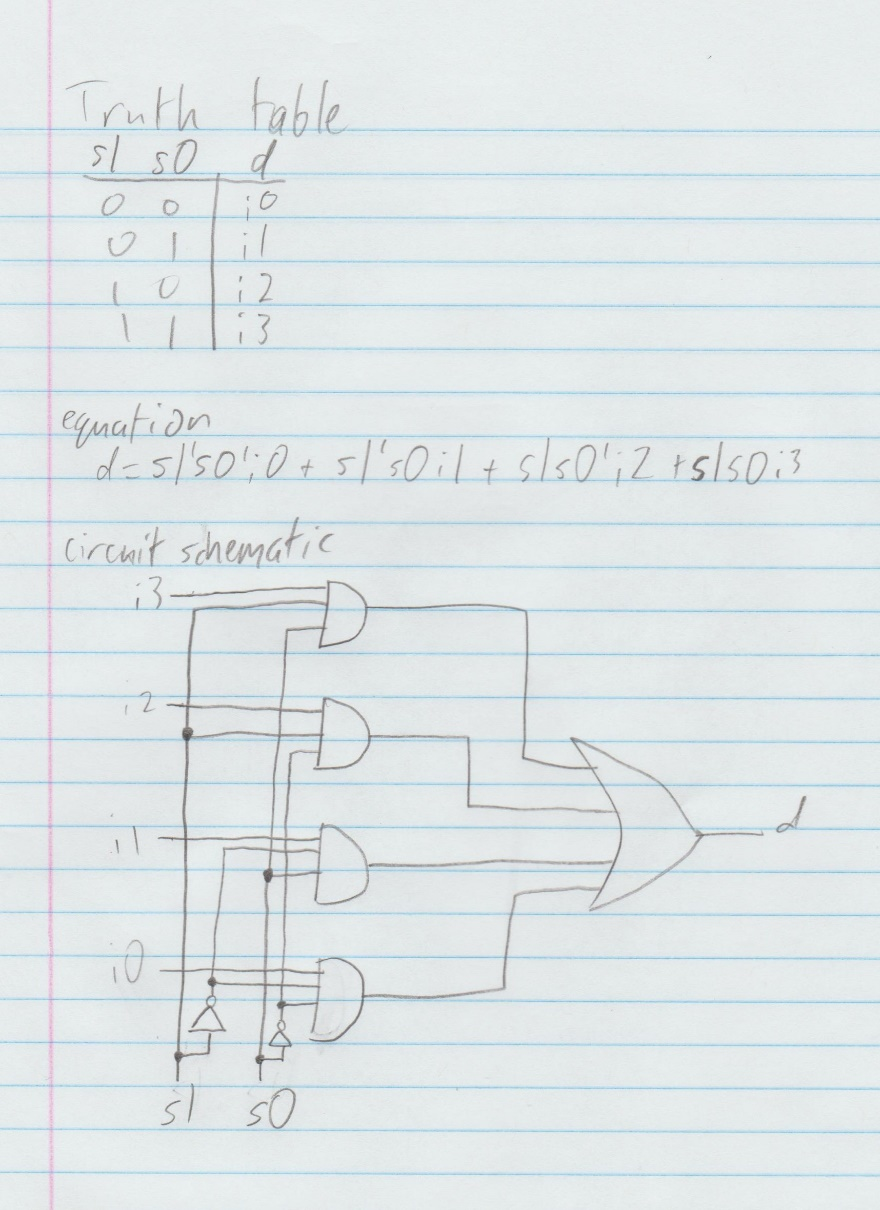 Truth table
s1 s0 d
0 0 i0
0 1 i1
1 0 i2
1 1 i3
equation
d = s1's0'i0 + s1's0i1 + s1s0'i2 + s1s0i3
circuit schematic
i3
i2
i1
d
i0
s1 s0